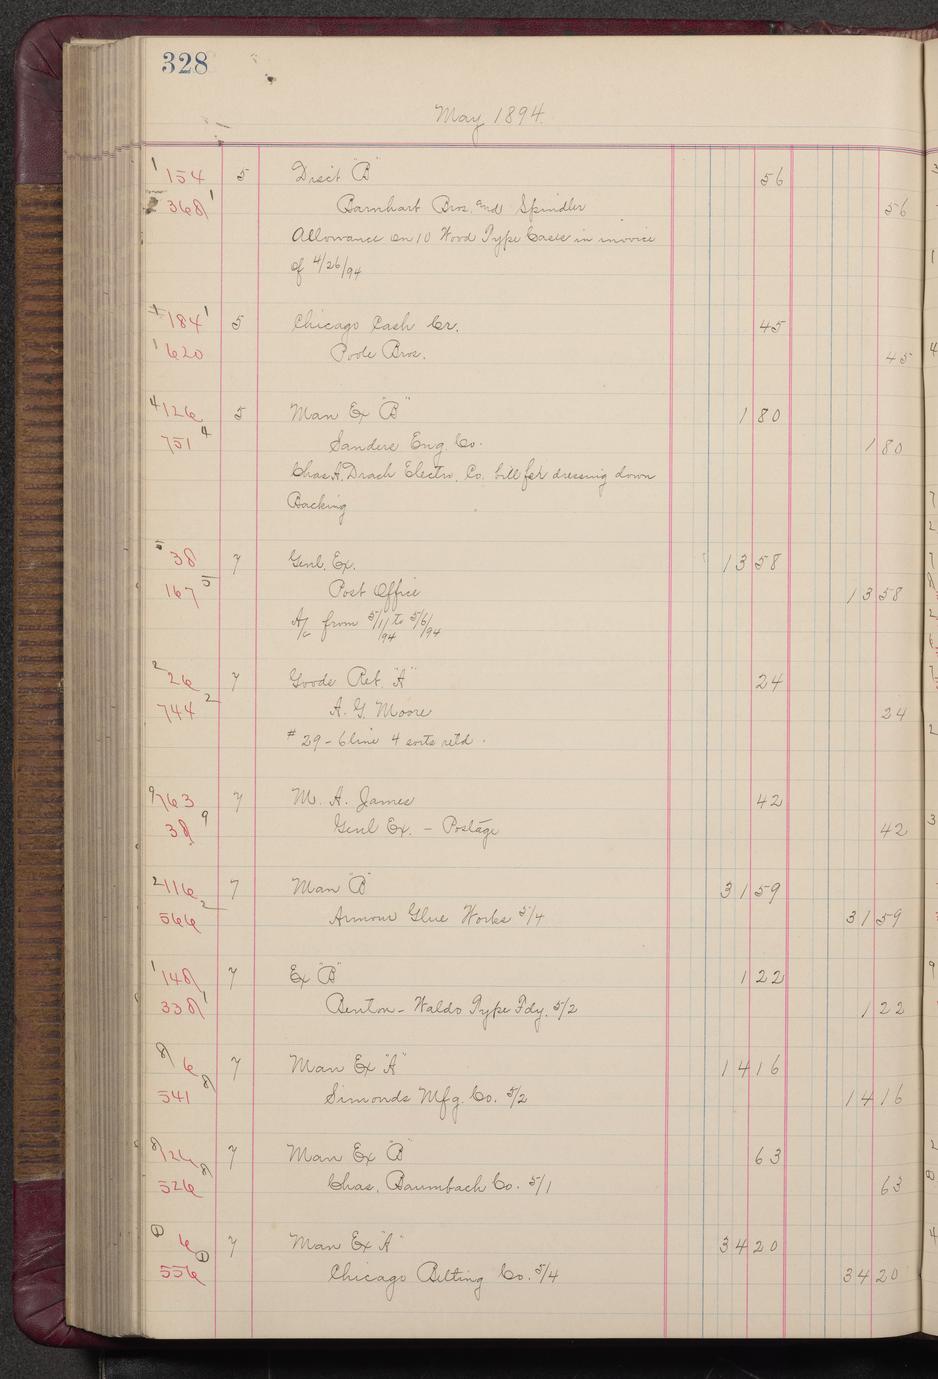 328
May 1894.
1 154 5 Disct "B" 56
368 1 Barnhart Bros. and Spindler 56
Allowance on 10 Wood Type Cases in invoice
of 4/26/94
1 184 1 5 Chicago Cash Cr. 45
1 620 Poole Bros. 45
4 126 5 Man Ex "B" 1 80
751 4 Sanders Eng. Co. 1 80
Chas. A. Drach Electro. Co. bill for dressing down
Backing
5 38 7 Genl. Ex. 13 58
167 5 Post Office 13 58
A/c from 5/1/94 to 5/6/94
2 26 7 Goods Ret. "A" 24
744 2 A. G. Moore 24
# 29 - 6 line 4 sorts retd.
9 763 7 M. A. James 42
38 9 Genl Ex. - Postage 42
2 116 7 Man "B" 31 59
566 2 Armour Glue Works 5/4 31 59
1 148 7 Ex "B" 1 22
338 1 Benton-Waldo Type Fdy. 5/2 1 22
8 6 7 Man Ex "A" 14 16
541 8 Simonds Mfg. Co. 5/2 14 16
8 126 7 Man Ex "B" 63
526 8 Chas. Baumbach Co. 5/1 63
1 6 7 Man Ex "A" 34 20
556 1 Chicago Belting Co. 5/4 34 20